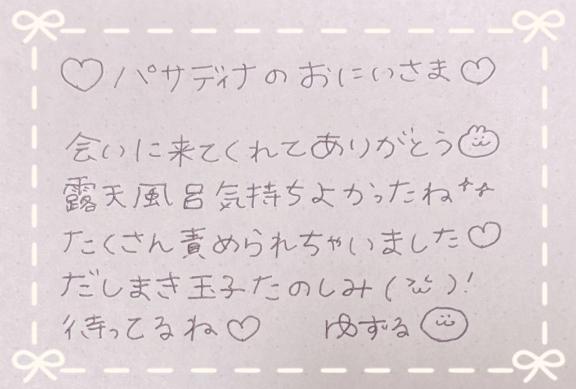 ♡パサディナのおにいさま♡
会いに来てくれてありがとう
露天風呂気持ちよかったね
たくさん責められちゃいました♡
だしまき玉子たのしみ( )!
待ってるね♡ ゆずる